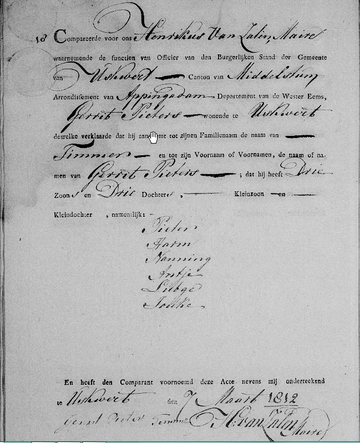 18 Compareerde voor ons Henrikus Van Zalen, Maire
waarnemende de functien van Officier van den Burgerlijken Stand der Gemeente
van Uskwert Canton van Middelstum
Arrondissement van Appingadam Departement van de Wester Eems,
Gerrit Pieters wonende te Uskwert
dewelke verklaarde dat hij aanneme tot zijnen Familienaam de naam van
Timmer en tot zijn Voornaam of Voornamen, de naam of na-
men van Gerrit Pieters ; dat hij heeft Drie
Zoons en Drie Dochters, Kleinzoon en
Kleindochter, namentlijk:
Pieter
Harm
Nanning
Antje
Liebge
En heeft den Comparant voornoemd deze Acte nevens mij onderteekend
te Uskwert den 7 Maart 1812
Gerrit Pieters Timmer H. van Zalen Maire